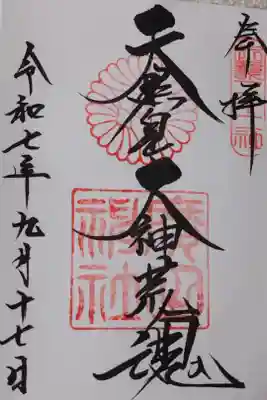 奉拝
天照皇大神荒魂
廣田神社
令和七年九月十七日